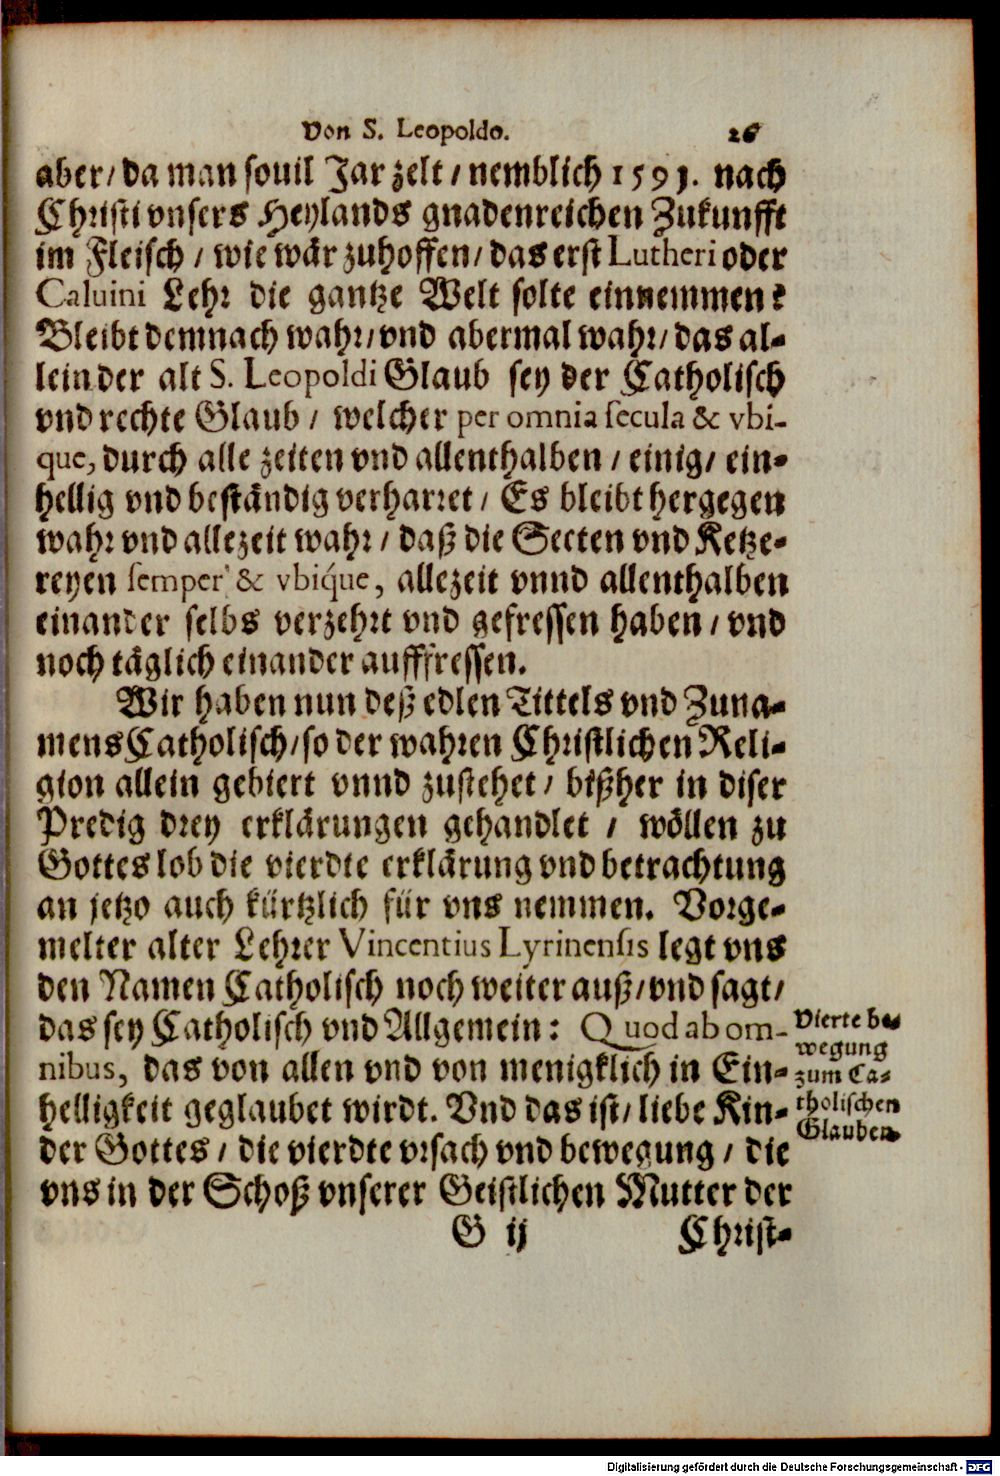 Von S. Leopoldo. 26
aber/ da man souil Jar zelt / nemblich 1591. nach
Christi vnsers Heylands gnadenreichen Zukunfft
im Fleisch / wie wär zuhoffen/ das erst Lutheri oder
Caluini Lehr die gantze Welt solte einnemmen?
Bleibt demnach wahr/ vnd abermal wahr/ das al-
lein der alt S. Leopoldi Glaub sey der Catholisch
vnd rechte Glaub / welcher per omnia secula & vbi-
que, durch alle zeiten vnd allenthalben / einig/ ein-
hellig vnd beständig verharret / Es bleibt hergegen
wahr vnd allezeit wahr / daß die Secten vnd Ketze-
reyen semper & vbiq́ue, allezeit vnnd allenthalben
einander selbs verzehrt vnd gefressen haben / vnd
noch täglich einander aufffressen.
Wir haben nun deß edlen Tittels vnd Zuna-
mens Catholisch/ so der wahren Christlichen Reli-
gion allein gebiert vnnd zustehet / bißher in diser
Predig drey erklärungen gehandlet / wöllen zu
Gottes lob die vierdte erklärung vnd betrachtung
an jetzo auch kürtzlich für vns nemmen. Vorge-
melter alter Lehrer Vincentius Lyrinensis legt vns
den Namen Catholisch noch weiter auß/ vnd sagt/
das sey Catholisch vnd Allgemein: Quod ab om-
nibus, das von allen vnd von menigklich in Ein-
helligkeit geglaubet wirdt. Vnd das ist/ liebe Kin-
der Gottes / die vierdte vrsach vnd bewegung / die
vns in der Schoß vnserer Geistlichen Mutter der
Vierte be-
wegung
zum Ca-
tholischen
Glauben.
G ij Christ-
Digitalisierung gefördert durch die Deutsche Forschungsgemeinschaft - DFG